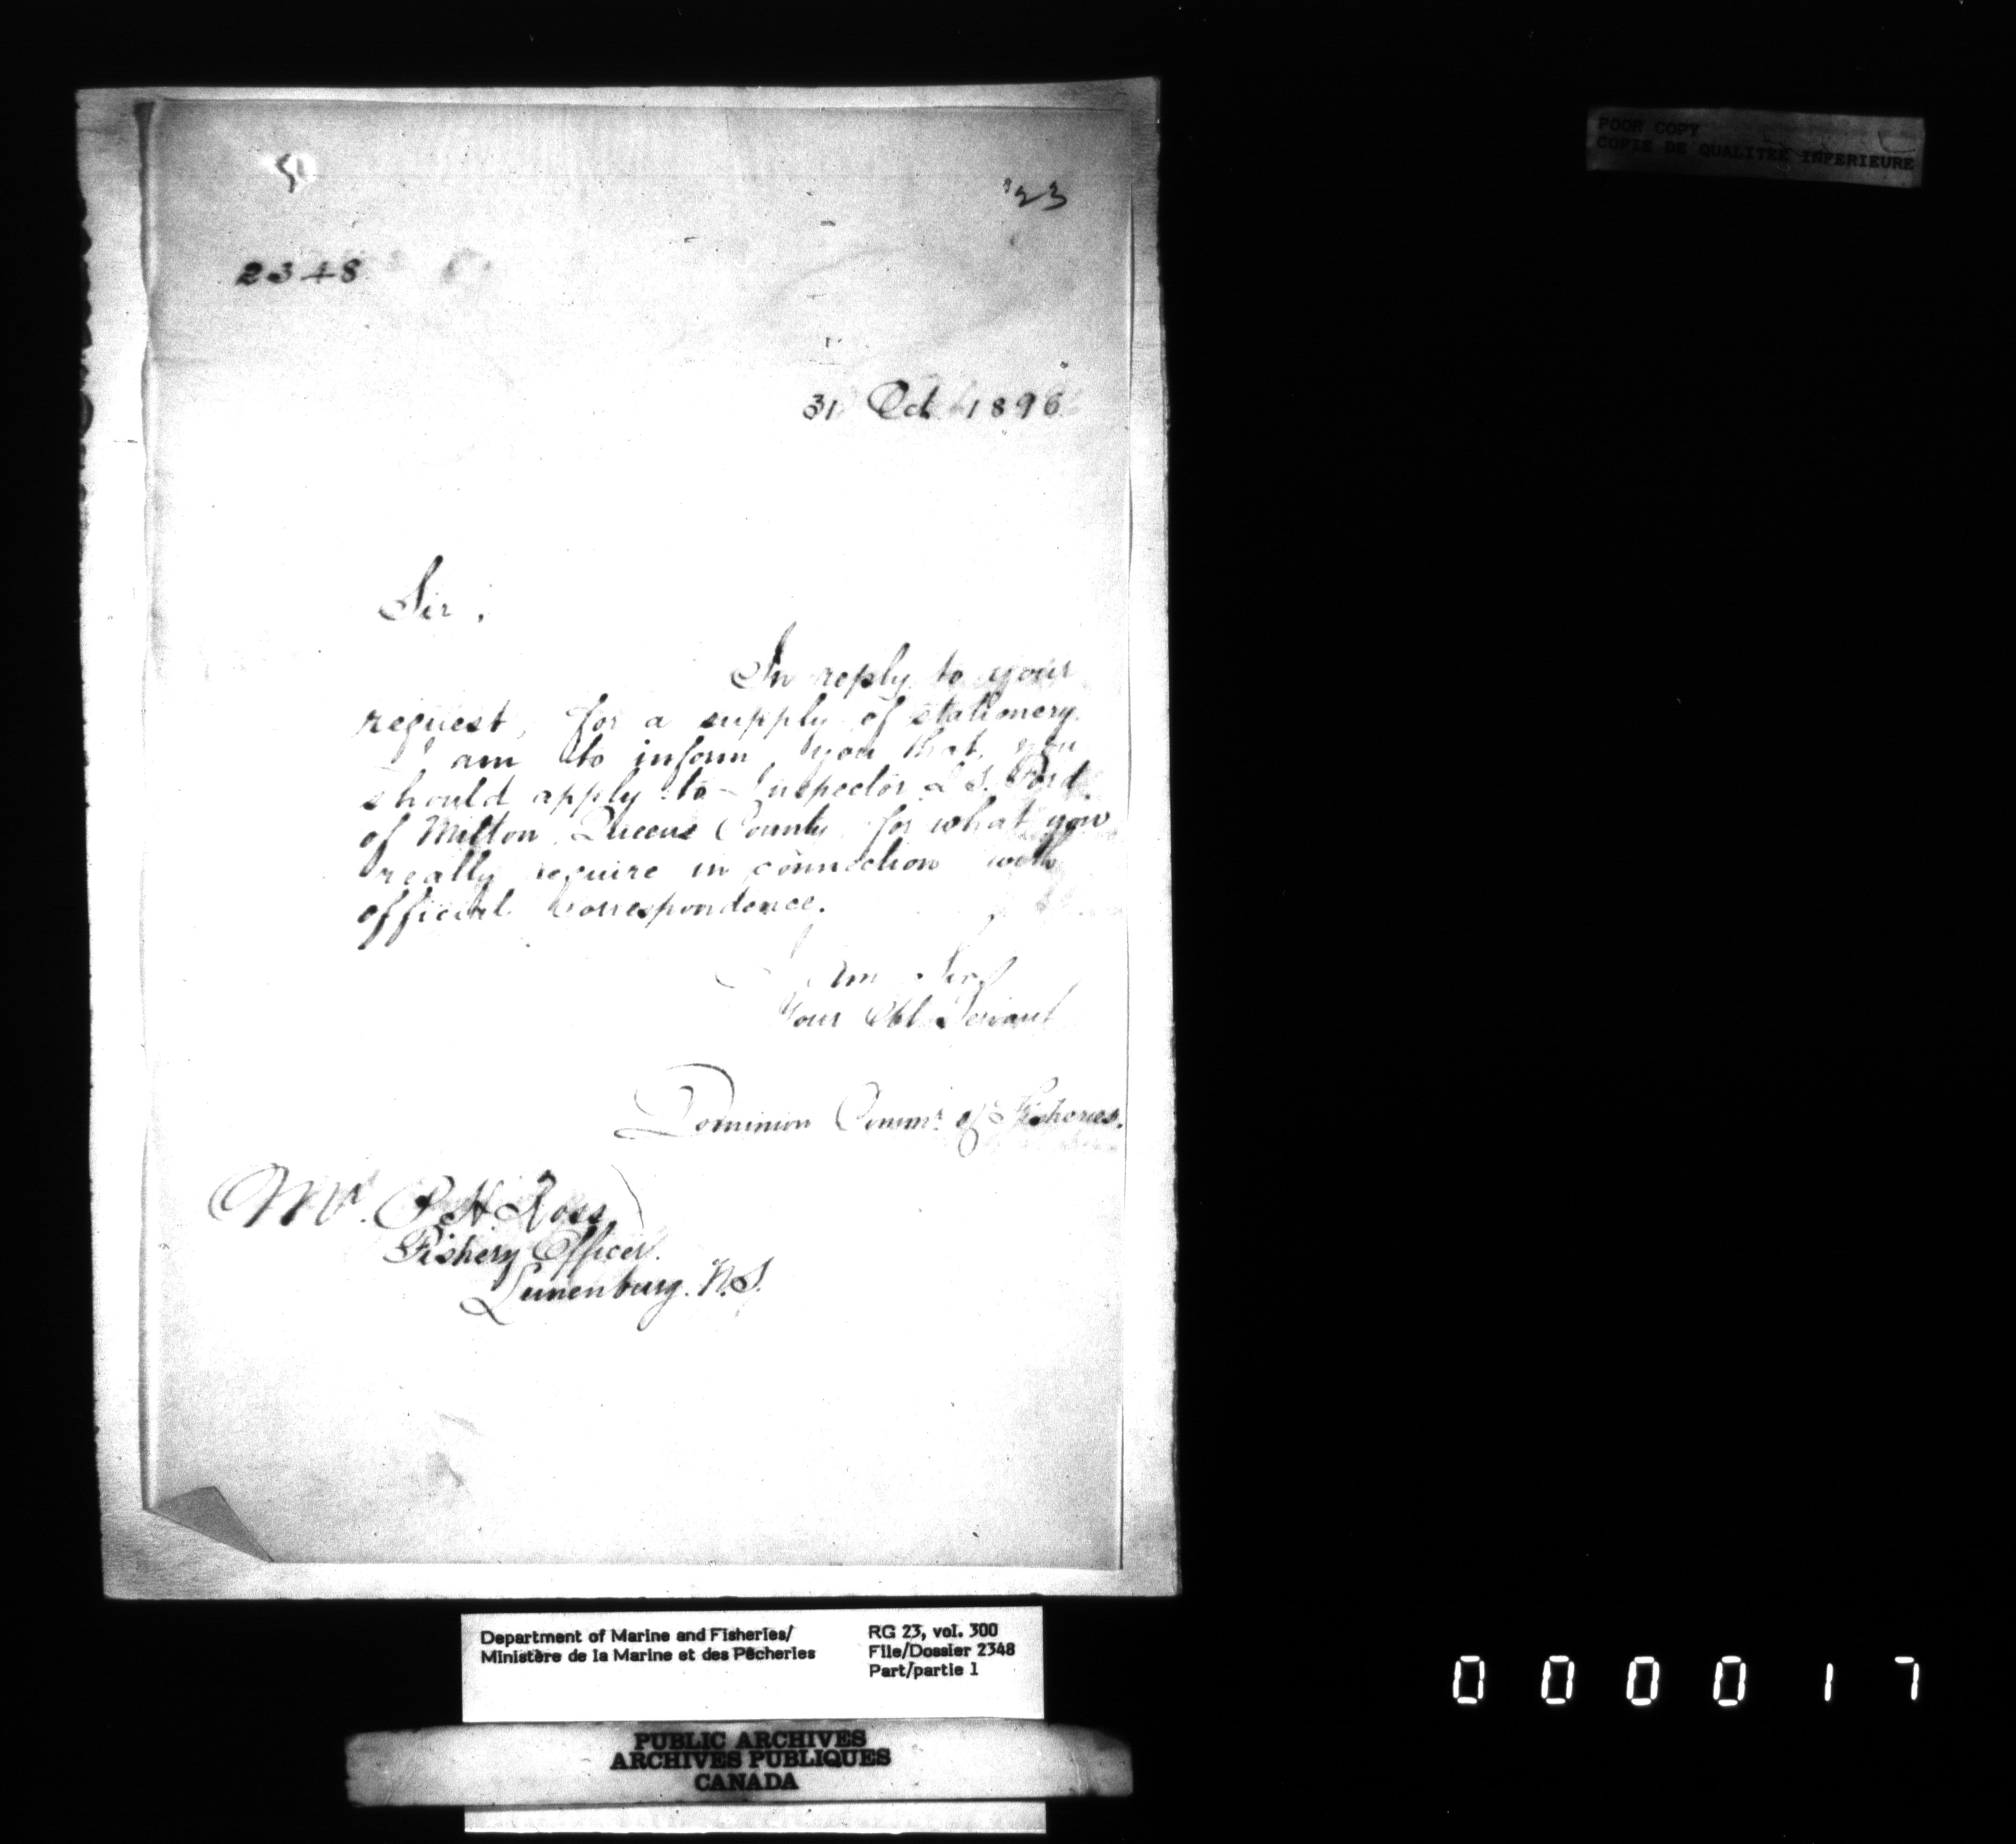 POOR COPY
COPIE DE QUALITEE INFERIEURE
'23
2348
31 Oct 1896
Sir,
In reply to your
request, for a supply of stationery.
I am to inform you that, you
should apply to Inspector L S. Ford.
of Milton, Queens County, for what you
really require in connection with
official correspondence.
I am Sir,
Your Obt. Servant
Dominion Commr. of Fisheries.
Mr. P. H. Ross,
Fishery Officer.
Lunenburg. N.S.
Department of Marine and Fisheries/
Ministère de la Marine et des Pêcheries
RG 23, vol. 300
File/Dossier 2348
Part/partie 1
PUBLIC ARCHIVES
ARCHIVES PUBLIQUES
CANADA
000017